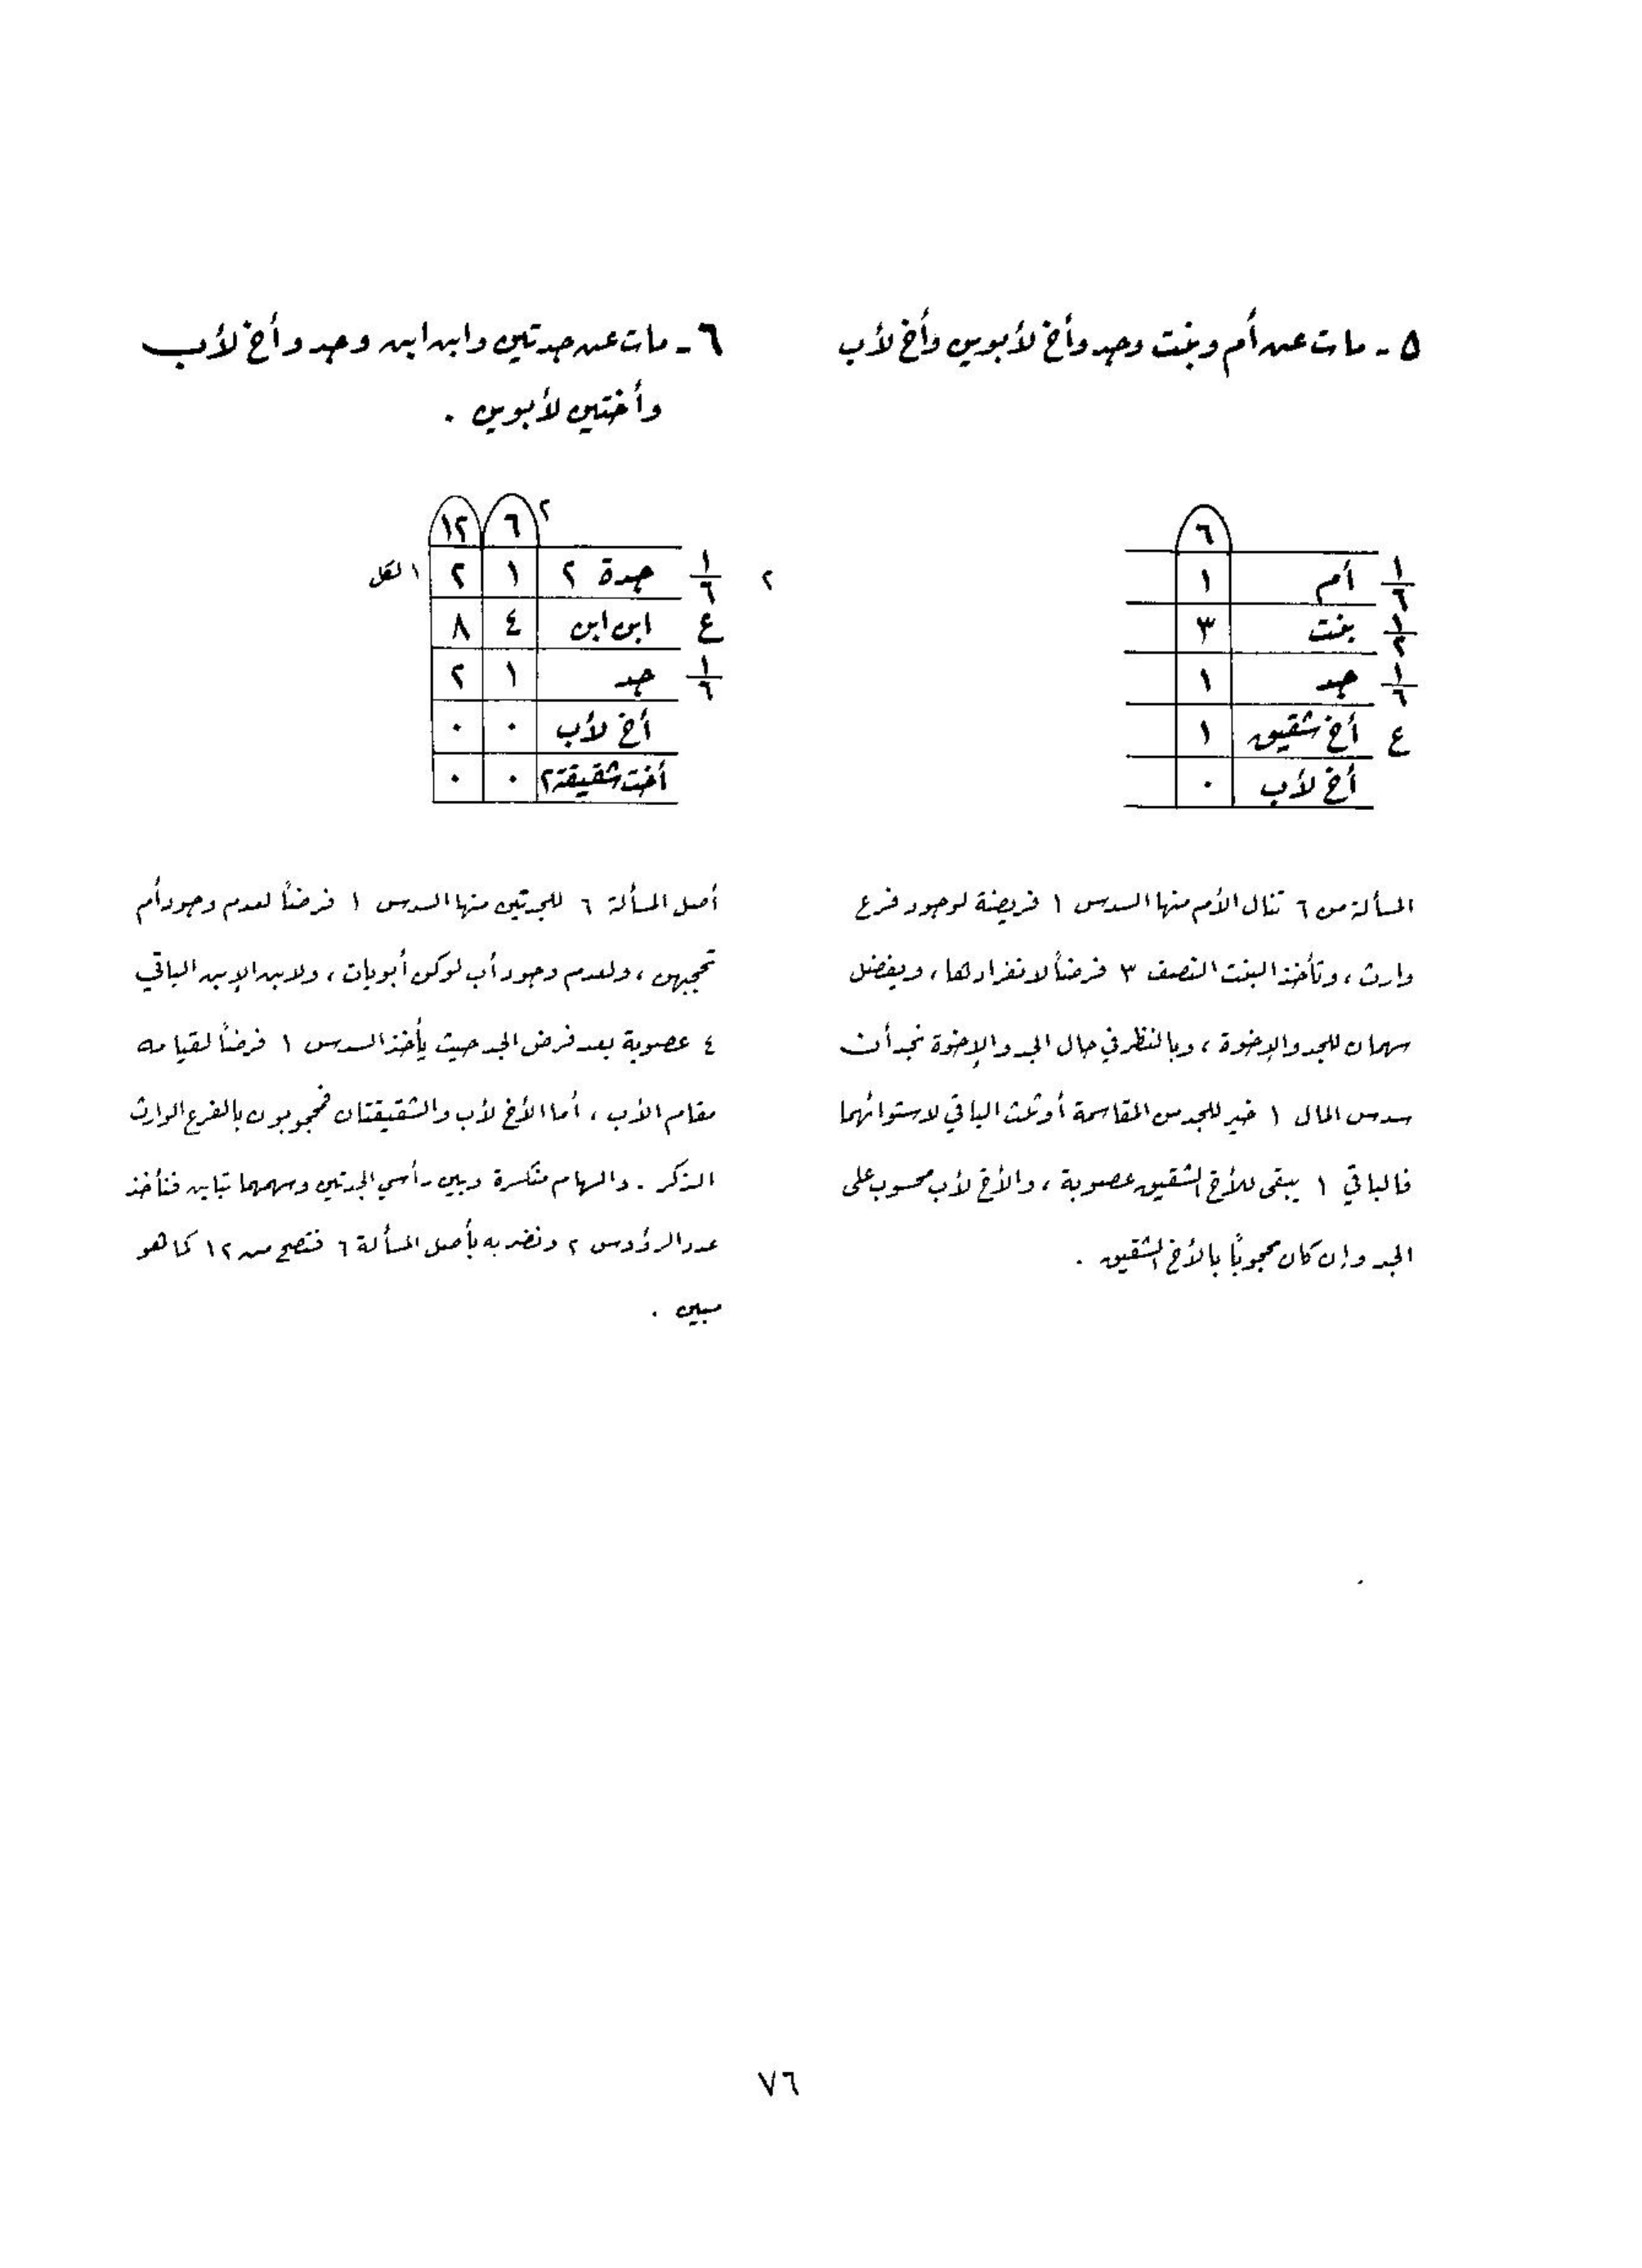 ٥ - مات عن أم وبنت وجد وأخ لأبوين وأخ لأب
٦
١/٦ أم ١
١/٢ بنت ٣
١/٦ جد ١
ع أخ شقيق ١
أخ لأب ٠
المسألة من ٦ تنال الأم منها السدس ١ فريضة لوجود فرع
وارث ، وتأخذ البنت النصف ٣ فرضاً لانفرادها ، ويفضل
سهمان للجد والإخوة ، وبالنظر في حال الجد والإخوة نجد أن
سدس المال ١ خير للجد من المقاسمة أو ثلث الباقي لاستوائهما
فالباقي ١ يبقى للأخ الشقيق عصوبة ، والأخ لأب محسوب على
الجد وإن كان محجوباً بالأخ الشقيق .
٦ - مات عن جدتين وابن ابن وجد وأخ لأب
وأختين لأبوين .
٢ ٦ ١٢
٢ ١/٦ جدة ٢ ١ ٢ ١ لكل
ع ابن ابن ٤ ٨
١/٦ جد ١ ٢
أخ لأب ٠ ٠
أخت شقيقة ٢ ٠ ٠
أصل المسألة ٦ للجدتين منها السدس ١ فرضاً لعدم وجود أم
تحجبهن ، ولعدم وجود أب لو كن أبويات ، ولابن الابن الباقي
٤ عصوبة بعد فرض الجد حيث يأخذ السدس ١ فرضاً لقيامه
مقام الأب ، أما الأخ لأب والشقيقتان فمحجوبون بالفرع الوارث
الذكر . والسهام منكسرة وبين رأسي الجدتين وسهمهما تباين فنأخذ
عدد الرؤوس ٢ ونضربه بأصل المسألة ٦ فتصح من ١٢ كما هو
مبين .
٧٦